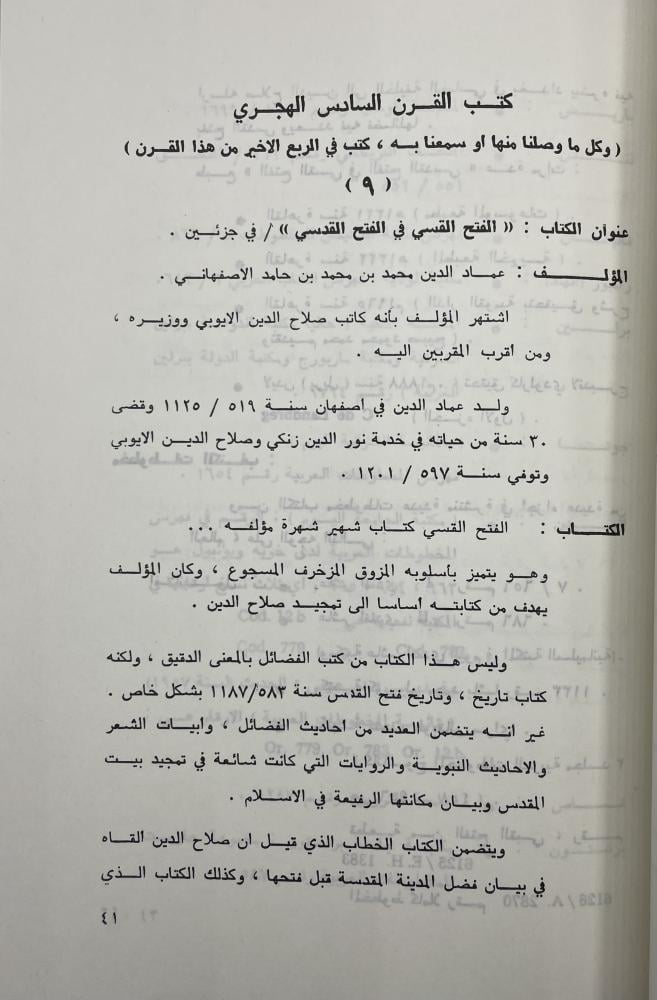 كتب القرن السادس الهجري
( وكل ما وصلنا منها او سمعنا به ، كتب في الربع الاخير من هذا القرن )
( ٩ )
عنوان الكتاب : « الفتح القسي في الفتح القدسي » / في جزئين .
المؤلف : عماد الدين محمد بن محمد بن حامد الاصفهاني .
اشتهر المؤلف بأنه كاتب صلاح الدين الايوبي ووزيره ،
ومن اقرب المقربين اليه .
ولد عماد الدين في اصفهان سنة ٥١٩ / ١١٢٥ وقضى
٣٠ سنة من حياته في خدمة نور الدين زنكي وصلاح الدين الايوبي
وتوفي سنة ٥٩٧ / ١٢٠١ .
الكتاب : الفتح القسي كتاب شهير شهرة مؤلفه ...
وهو يتميز بأسلوبه المزوق المزخرف المسجوع ، وكان المؤلف
يهدف من كتابته اساسا الى تمجيد صلاح الدين .
وليس هذا الكتاب من كتب الفضائل بالمعنى الدقيق ، ولكنه
كتاب تاريخ ، وتاريخ فتح القدس سنة ١١٨٧/٥٨٣ بشكل خاص .
غير انه يتضمن العديد من احاديث الفضائل ، وابيات الشعر
والاحاديث النبوية والروايات التي كانت شائعة في تمجيد بيت
المقدس وبيان مكانتها الرفيعة في الاسلام .
ويتضمن الكتاب الخطاب الذي قيل ان صلاح الدين القاه
في بيان فضل المدينة المقدسة قبل فتحها ، وكذلك الكتاب الذي
٤١